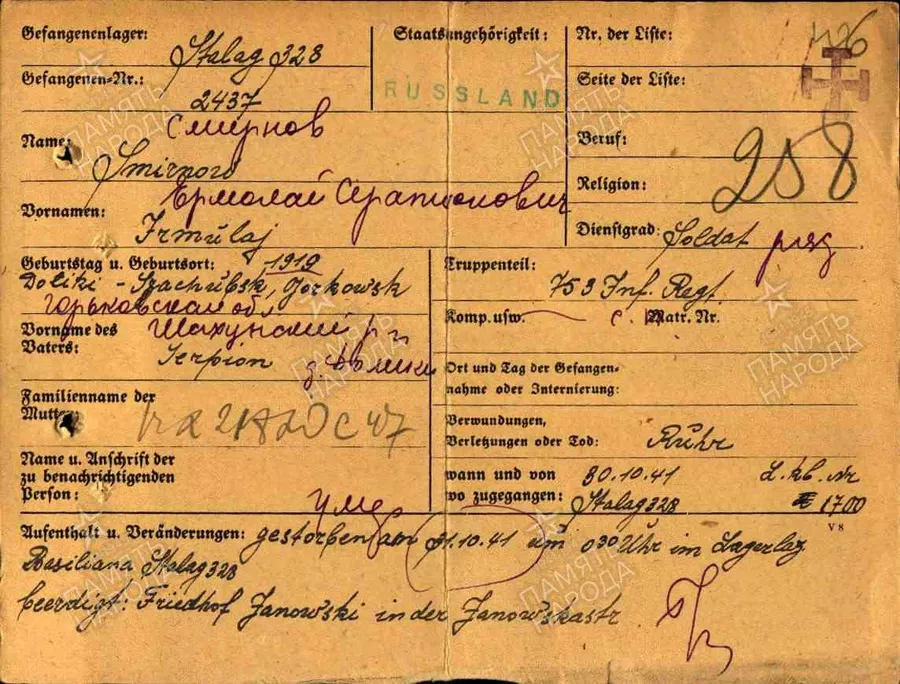 Gefangenenlager: Stalag 328
Staatsangehörigkeit: RUSSLAND
Nr. der Liste:
Gefangenen-Nr.: 2437
Seite der Liste:
Смирнов
Name: Smirnow
Beruf: 258
Religion:
Ермолай Серапионович
Vornamen: Irmulaj
Dienstgrad: Soldat ряд
Geburtstag u. Geburtsort: 1919
Doliki - Szachubsk, Gorkowsk
Горьковская об
Truppenteil: 753 Inf. Regt.
Komp. usw. Matr. Nr.
Шахунский р-н
Vorname des Vaters: Serpion
Ort und Tag der Gefangen-
nahme oder Internierung:
Familienname der
Mutter:
Verwundungen,
Verletzungen oder Tod: Ruhr
Name u. Anschrift der
zu benachrichtigenden
Person:
wann und von 30.10.41 L. kb. Nr
wo zugegangen: Stalag 328 1700
V 8
Aufenthalt u. Veränderungen: gestorben am 31.10.41 um 0 30 Uhr im Lagerlaz
Basiliana Stalag 328
beerdigt: Friedhof Janowski in der Janowskastr.
ПАМЯТЬ НАРОДА